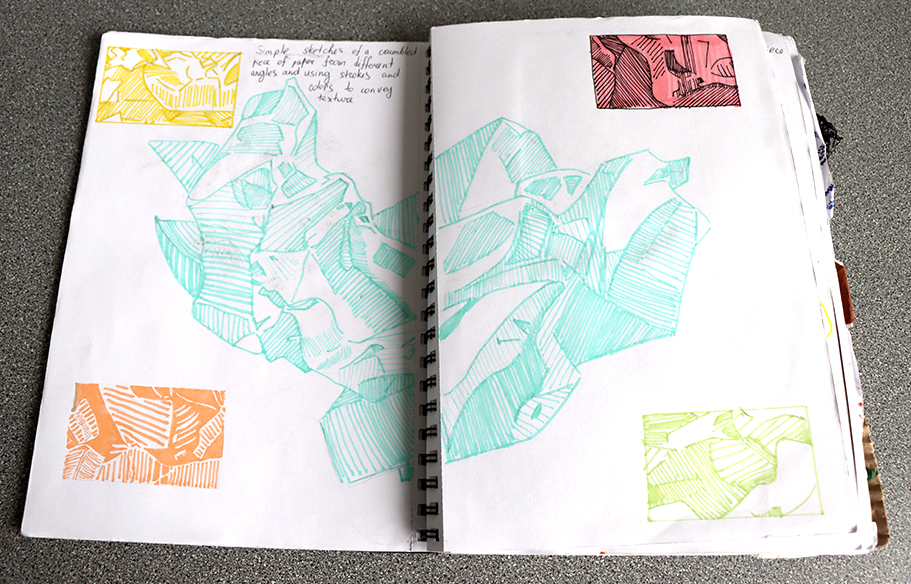 Simple sketches of a crumbled
piece of paper from different
angles and using strokes and
colors to convey
texture
eco